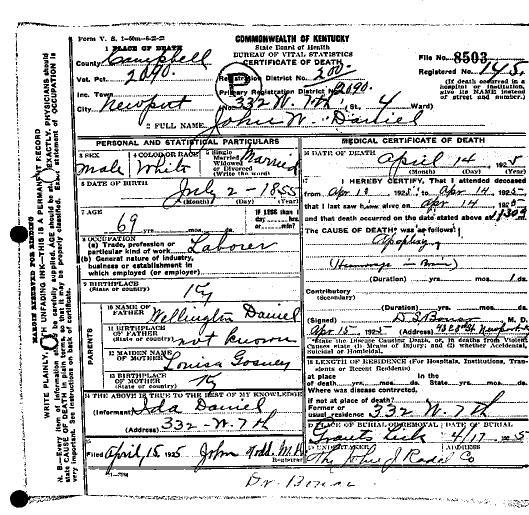 Form V. S. 1-50m-6-22-22
COMMONWEALTH OF KENTUCKY
State Board of Health
BUREAU OF VITAL STATISTICS
CERTIFICATE OF DEATH
1 PLACE OF DEATH
County Campbell
Vot. Pct. 2090.
Inc. Town
City Newport
Registration District No. 200
Primary Registration District No. 2090.
(No. 332 W. 7th St., 4 Ward)
File No. 8503
Registered No. 145.
(If death occurred in a hospital or institution, give its NAME instead of street and number.)
2 FULL NAME John W. Daniel
PERSONAL AND STATISTICAL PARTICULARS
3 SEX Male
4 COLOR OR RACE White
5 Single Married Widowed or Divorced (Write the word) Married
6 DATE OF BIRTH July 2 - 1855
(Month) (Day) (Year)
7 AGE 69 yrs. mos. ds.
If LESS than 1 day hrs. or min.
8 OCCUPATION
(a) Trade, profession or particular kind of work Laborer
(b) General nature of industry, business or establishment in which employed (or employer)
9 BIRTHPLACE
(State or country) Ky
PARENTS
10 NAME OF FATHER Wellington Daniel
11 BIRTHPLACE OF FATHER
(State or country) not known
12 MAIDEN NAME OF MOTHER Louisa
13 BIRTHPLACE OF MOTHER
(State or country) Ky
14 THE ABOVE IS TRUE TO THE BEST OF MY KNOWLEDGE
(Informant) Ida Daniel
(Address) 332 - W - 7th
15 Filed April 15 1925 John Todd M.D.
Registrar
MEDICAL CERTIFICATE OF DEATH
16 DATE OF DEATH April 14 1925
(Month) (Day) (Year)
17 I HEREBY CERTIFY, That I attended deceased
from Apr 12 1925 to Apr 14 1925
that I last saw him alive on Apr 14 1925
and that death occurred on the date stated above at
The CAUSE OF DEATH was as follows:
Apoplexy
(Hemorrage in Brain)
(Duration) yrs. mos. ds.
Contributory
(Secondary)
(Duration) yrs. mos. ds.
(Signed) M. D.
Apr 15 1925 (Address) Newport
State the Disease Causing Death, or, in deaths from Violent Causes state (1) Means of Injury; and (2) whether Accidental, Suicidal or Homicidal.
18 LENGTH OF RESIDENCE (For Hospitals, Institutions, Transients or Recent Residents)
At place of death yrs. mos. ds. State yrs. mos. ds.
Where was disease contracted,
if not at place of death?
Former or usual residence 332 W. 7th
19 PLACE OF BURIAL OR REMOVAL
DATE OF BURIAL
4/17 1925
20 UNDERTAKER
ADDRESS
The John J Radel Co
MARGIN RESERVED FOR BINDING
WRITE PLAINLY, WITH UNFADING INK—THIS IS A PERMANENT RECORD
N. B.—Every item of information should be carefully supplied. AGE should be stated EXACTLY. PHYSICIANS should state CAUSE OF DEATH in plain terms, so that it may be properly classified. Exact statement of OCCUPATION is very important. See instructions on back of certificate.